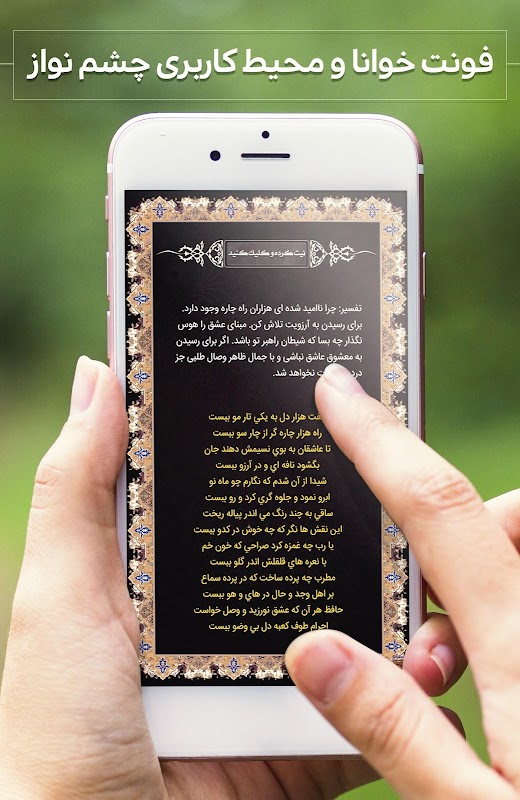 فونت خوانا و محیط کاربری چشم نواز
نیت کرده و کلیک کنید
تفسیر: چرا ناامید شده ای هزاران راه چاره وجود دارد.
برای رسیدن به آرزویت تلاش کن. مبنای عشق را هوس
نگذار چه بسا که شیطان راهبر تو باشد. اگر برای رسیدن
به معشوق عاشق نباشی و با جمال ظاهر وصال طلبی جز
نخواهد شد.
هزار دل به يکي تار مو ببست
راه هزار چاره گر از چار سو ببست
تا عاشقان به بوي نسيمش دهند جان
بگشود نافه اي و در آرزو ببست
شيدا از آن شدم که نگارم چو ماه نو
ابرو نمود و جلوه گري کرد و رو ببست
ساقي به چند رنگ مي اندر پياله ريخت
اين نقش ها نگر که چه خوش در کدو ببست
يا رب چه غمزه کرد صراحي که خون خم
با نعره هاي قلقلش اندر گلو ببست
مطرب چه پرده ساخت که در پرده سماع
بر اهل وجد و حال در هاي و هو ببست
حافظ هر آن که عشق نورزيد و وصل خواست
احرام طوف کعبه دل بي وضو ببست